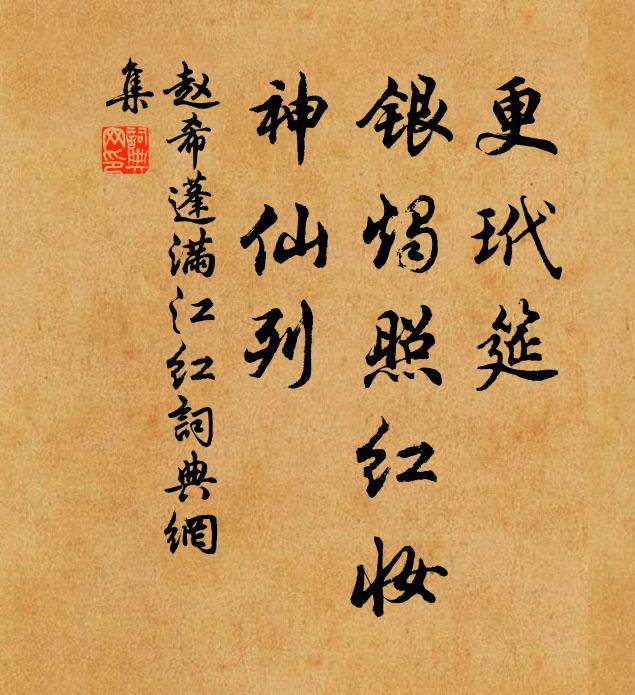 更玳筵
银烛照红妆
神仙列
赵希蓬满江红詞典網
集
詞典
网印